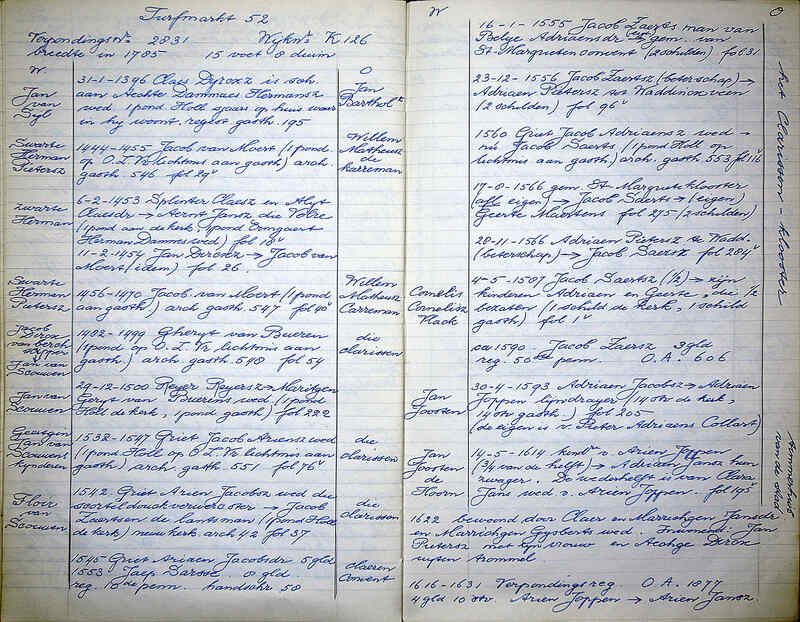 Turfmarkt 52
Verpondingsnr. 2831 Wijknr. K 126
breedte in 1785 15 voet 8 duim
W. O
Jan van Syl
31-1-1396 Claes Dircxz is sch.
aan Aechte Dammaes Hermansz
wed 1 pond Holl sjaers op huis waar
in hy woont. regest gasth. 195
Jan Barthol
Swarte Herman Pietersz
1444-1455 Jacob van Moert (1 pond
op O.L.Vr lichtmis aan gasth) arch.
gasth 546 fol 29v
Willem Matheusz de karreman
Zwarte Herman
6-2-1453 Splinter Claesz en Alyt
Claesdr → Aernt Jansz die Volre
(1 pond aan de kerk 1 pond Tongaert
Herman Dammes wed) fol 18v
11-2-1454 Jan Dircxz → Jacob van
Moert (idem) fol 26.
Swarte Herman Pietersz
1456-1470 Jacob van Moert (1 pond
aan gasth) arch. gasth. 547 fol 40v
Willem Matheusz Carreman
Jacob Dirx van berch
Jan van Scouwen
1482-1499 Gheryt van Bueren
(1 pond op O.L.Vr lichtmis aan
gasth) arch gasth 548 fol 54
die clarissen
Jan van Scouwen
29-12-1500 Reyer Reyersz → Maritgen
Geryt van Buerens wed. (1 pond
Holl de kerk, 1 pond gasth) fol 222
Geertgen Jan van Scouwens kynderen
1532-1547 Griet Jacob Ariensz wed
(1 pond Holl op O.L.Vr lichtmis aan
gasth) arch gasth. 551 fol 76v
die clarissen
Floir van Scouwen
1542 Griet Arien Jacobsz wed die
voortel douck verwercoster → Jacob
Zaertsen de lantsman (1 pond Holl
de kerk) meuw kerk. arch 42 fol 37
die clarissen
1545 Griet Ariaen Jacobsdr 5 gld
1553 Jaep Sarsse . 8 gld.
reg. 10de penn. handschr 58
claeren Convent
W O
16-1-1555 Jacob Zaerts man van
Baelye Adriaensdr (eigen) gem. van
St-Margrieten convent (2 schilden) fol 31
23-12-1556 Jacob Zaertsz (beterschap) →
Adriaen Pietersz tot Waddinxveen
(2 schilden) fol 96v
1560 Griet Jacob Adriaensz wed →
nu Jacob Saerts (1 pond Holl op
lichtmis aan gasth) arch gasth 553 fol 116v
17-8-1566 gem. St-Margrietklooster
(afl. eigen) → Jacob Sderts → (eigen)
Geerte Maertens fol 275 (2 schilden)
28-11-1566 Adriaen Pietersz te Wadd.
(beterschap) → Jacob Saersz fol 284v
Cornelis Cornelisz Vlack
4-5-1587 Jacob Saertsz (½) → zijn
kinderen Adriaen en Geerte, die ½
bezaten (1 schild de kerk, 1 schild
gasth) fol 1v
ca 1590. Jacob Zaersz 3 gld
reg. 50ste penn. O.A. 606
Jan Joosten
30-4-1593 Adriaen Jacobsz → Adriaen
Joppen lijndrayer (14 stv de kerk,
14 stv gasth.) fol 205
(de eigen is v. Pieter Adriaens Collart)
Jan Joosten de Hoorn
14-5-1614 kindn v. Arien Joppen
(¾ van de helft) → Adriaen Jansz hun
zwager. De wederhelft is van Clara
Jans wed v. Arien Joppen. fol 145v
1622 bewoond door Claer en Marrichgen Jansdr
en Marrichgen Gysberts wed. Jan
Pietersz met zijn vrouw en Aechge Dircx
uyten trommel
1616-1631 Verpondingsreg. O.A. 1877
4 gld 10 stv. Arien Joppen → Arien Jansz.
Het Clarissen-klooster
van de stad